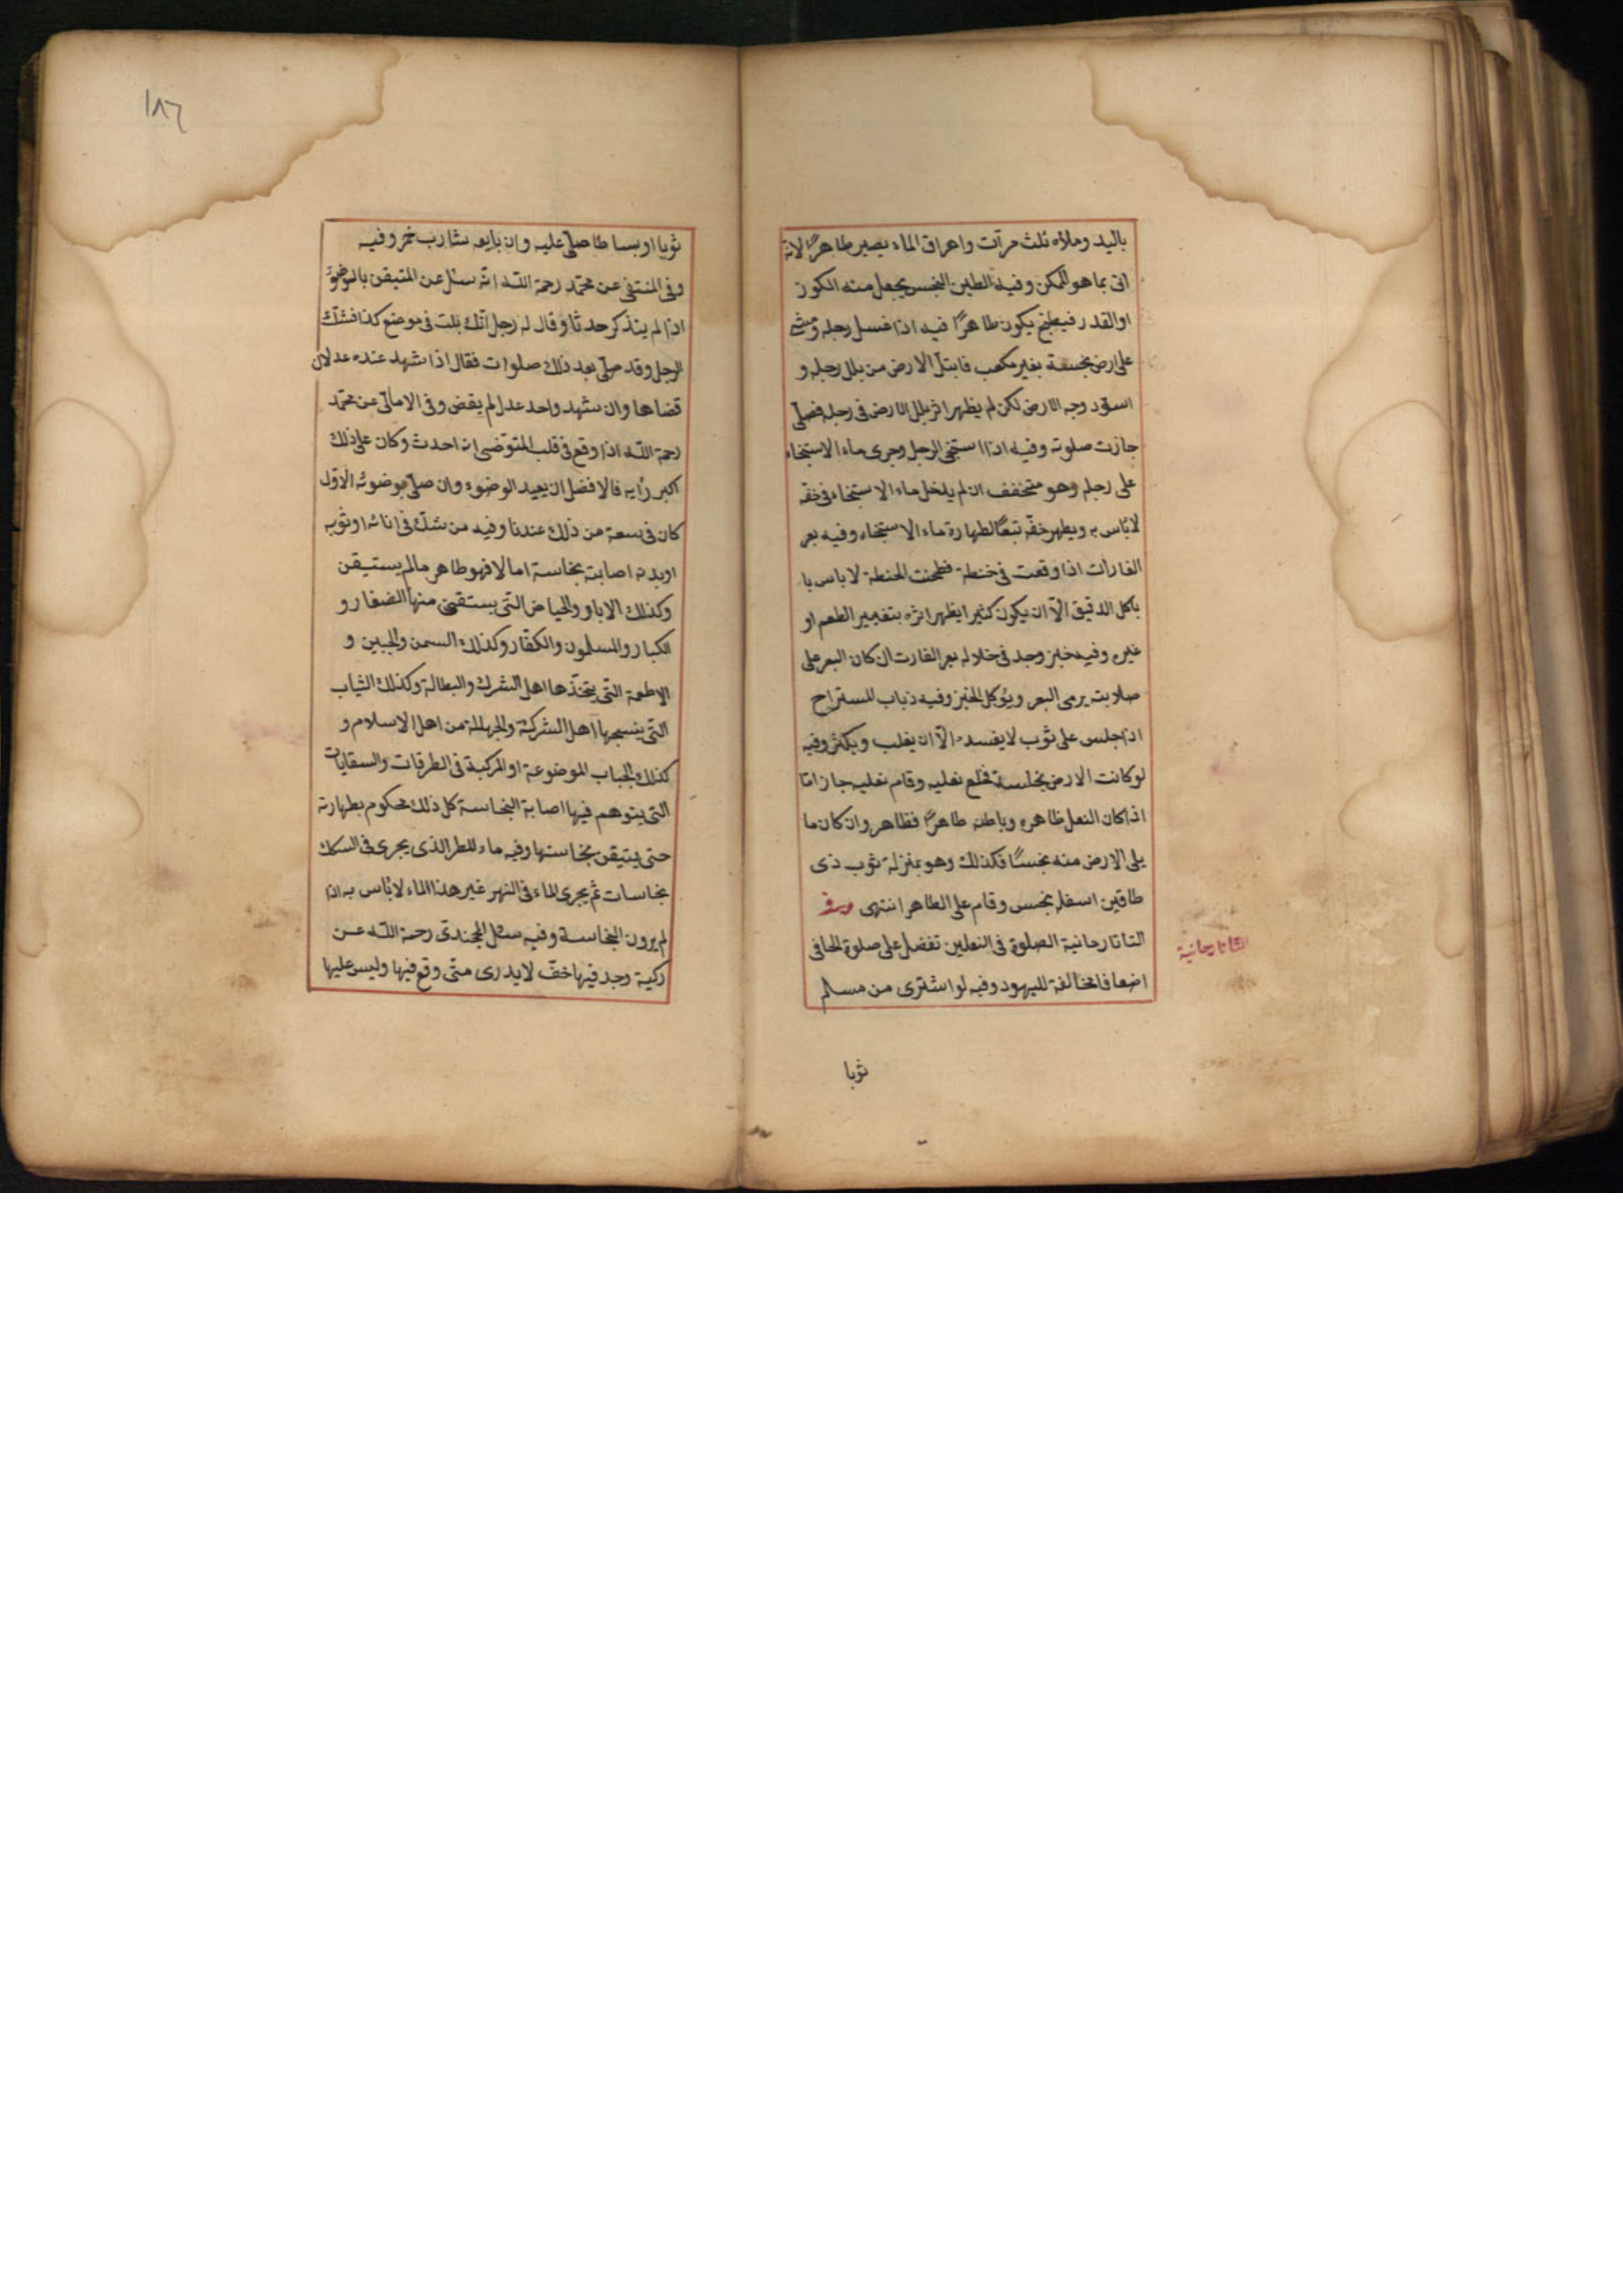 باليد وملأه ثلث مرآت واهراق الماء يصير طاهرًا لانه
اتى بما هو الممكن وفيه الطين النجس يجعل منه الكوز
او القدر فيطبخ يكون طاهرًا فيه اذا غسل رجله ومشى
على ارض نجسة بغير مكعب فابتل الارض من بلل رجله و
اسودّ وجه الارض لكن لم يظهر اثر بلل الارض في رجله فصلّى
جازت صلوته وفيه اذا استنجى الرجل وجرى ماء الاستنجاء
على رجله وهو متخفف ان لم يدخل ماء الاستنجاء في خفّه
لا بأس به ويطهر خفّه تبعًا لطهارة ماء الاستنجاء وفيه بعر
الفارات اذا وقعت في حنطة فطحنت الحنطة لا باس با
باكل الدقيق الّا ان يكون كثيرا يظهر اثره بتغيير الطعم او
غيره وفيه خبز وجد في خلاله بعر الفارت ان كان البعر على
صلابته يرمى البعر ويؤكل الخبز وفيه ذباب المستراح
اذا جلس على ثوب لا يفسده الّا ان يغلب ويكثر وفيه
لو كانت الارض نجاسة فخلع نعليه وقام نعليه جاز امّا
اذا كان النعل ظاهره وباطنه طاهرًا فظاهر وان كان ما
يلى الارض منه نجسًا فكذلك وهو بمنزلة ثوب ذى
طاقين اسفله نجس وقام على الطاهر انتهى وفى
التاتارخانية الصلوة في النعلين تفضل على صلوة الحافى
اضعافا مخالفة لليهود وفيه لو اشترى من مسلم
التاتارخانية
ثوبا
١٨٦
ثوبا او بساطا صلّى عليه وان بايعه شارب خمر وفيه
وفى المنتقى عن محمّد رحمة اللّه انّه سئل عن المتيقن بالوضوء
اذا لم يتذكر حدثا وقال له رجل انّك بلت في موضع كذا فشكّ
الرجل وقد صلّى بعد ذلك صلوات فقال اذا شهد عنده عدلان
قضاها وان شهد واحد عدل لم يقض وفى الامالّى عن محمّد
رحمة اللّه اذا وقع في قلب المتوضى انه احدث وكان على ذلك
اكبر رأيه فالافضل ان يعيد الوضوء وان صلّى بوضوئه الاوّل
كان في سعة من ذلك عندنا وفيه من شكّ في انائه او ثوبه
او بدنه اصابته نجاسة ام لا فهو طاهر ما لم يستيقن
وكذلك الابار والحياض التّى يستقى منها الصغار و
الكبار والمسلمون والكفّار وكذلك السمن والجبن و
الاطعمة التّى يتخذها اهل الشرك والبطالة وكذلك الثياب
التّى ينسجها اهل الشركة والجهالة من اهل الاسلام و
كذلك الجباب الموضوعة او المركبة في الطرقات والسقايات
التى يتوهم فيها اصابة النجاسة كل ذلك محكوم بطهارته
حتى يتيقن نجاستها وفيه ماء المطر الذى يجرى في السكك
نجاسات ثم يجرى الماء في النهر غير هذا الماء لا بأس به اذا
لم يرون النجاسة وفيه سئل الخجندى رحمة اللّه عن
ركية وجد فيها خفّ لا يدرى متّى وقع فيها وليس عليها